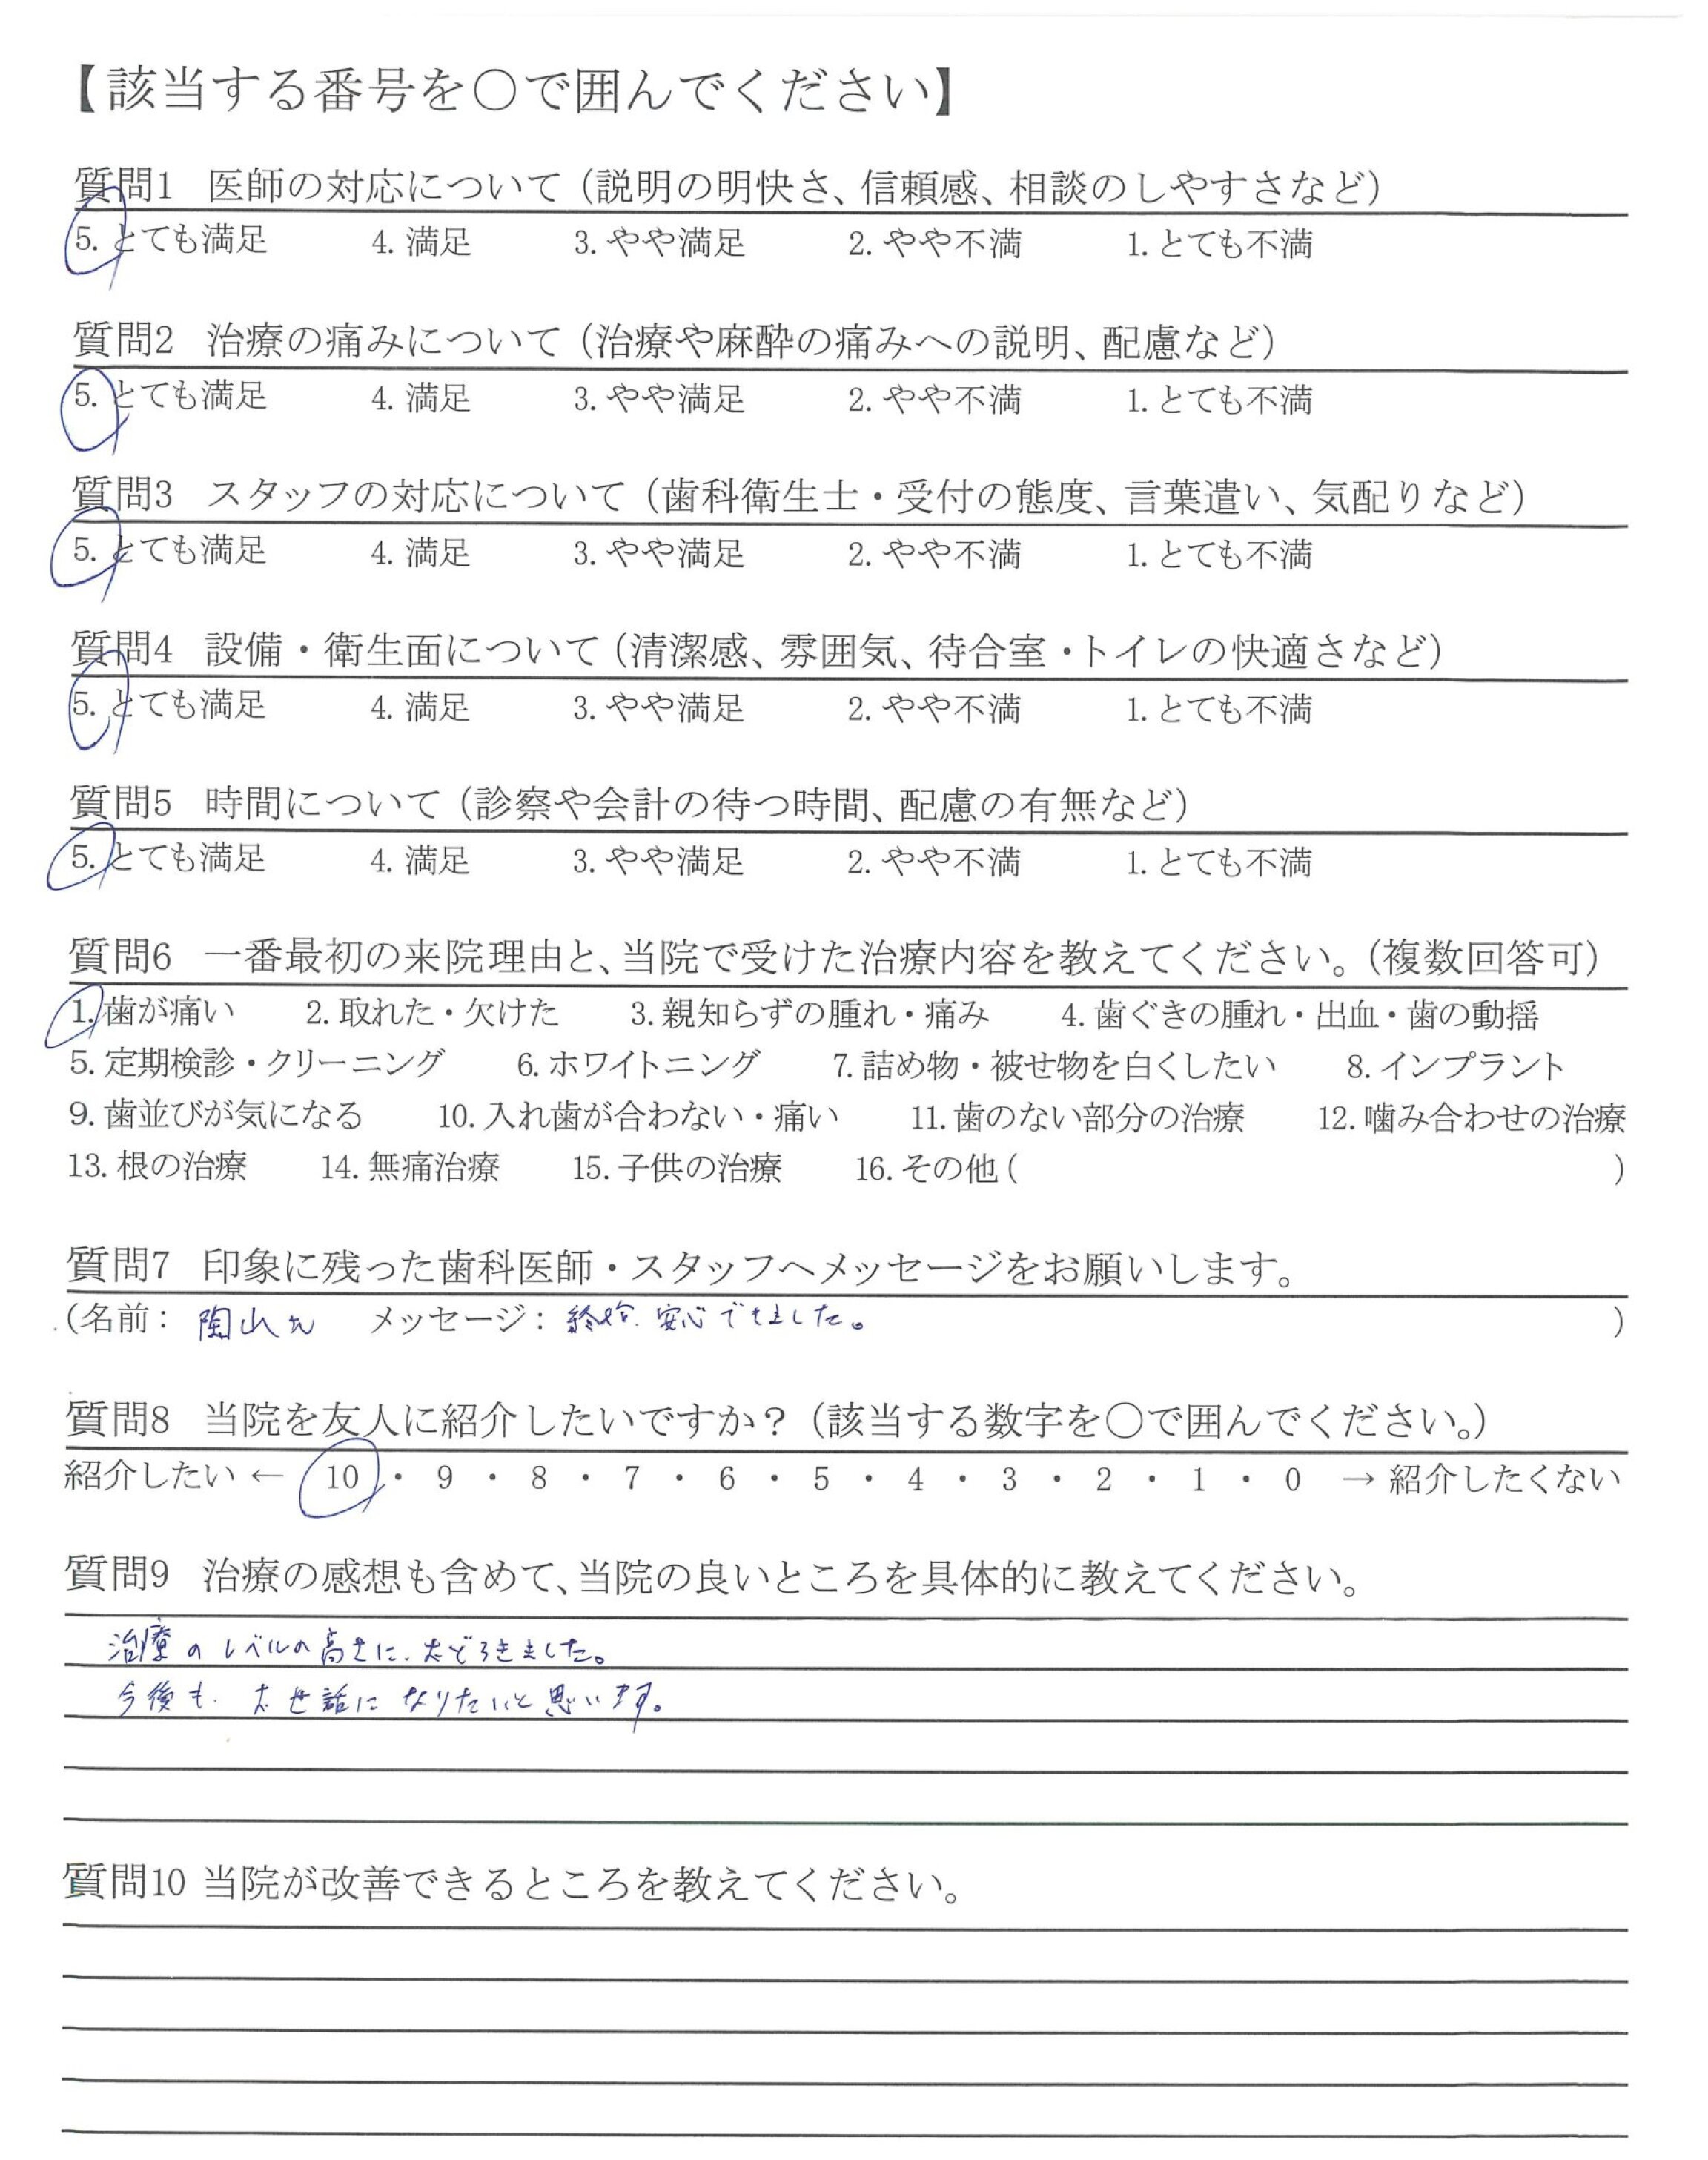 【該当する番号を〇で囲んでください】
質問1 医師の対応について（説明の明快さ、信頼感、相談のしやすさなど）
5. とても満足 4. 満足 3. やや満足 2. やや不満 1. とても不満
質問2 治療の痛みについて（治療や麻酔の痛みへの説明、配慮など）
5. とても満足 4. 満足 3. やや満足 2. やや不満 1. とても不満
質問3 スタッフの対応について（歯科衛生士・受付の態度、言葉遣い、気配りなど）
5. とても満足 4. 満足 3. やや満足 2. やや不満 1. とても不満
質問4 設備・衛生面について（清潔感、雰囲気、待合室・トイレの快適さなど）
5. とても満足 4. 満足 3. やや満足 2. やや不満 1. とても不満
質問5 時間について（診察や会計の待つ時間、配慮の有無など）
5. とても満足 4. 満足 3. やや満足 2. やや不満 1. とても不満
質問6 一番最初の来院理由と、当院で受けた治療内容を教えてください。（複数回答可）
1. 歯が痛い 2. 取れた・欠けた 3. 親知らずの腫れ・痛み 4. 歯ぐきの腫れ・出血・歯の動揺
5. 定期検診・クリーニング 6. ホワイトニング 7. 詰め物・被せ物を白くしたい 8. インプラント
9. 歯並びが気になる 10. 入れ歯が合わない・痛い 11. 歯のない部分の治療 12. 噛み合わせの治療
13. 根の治療 14. 無痛治療 15. 子供の治療 16. その他（ ）
質問7 印象に残った歯科医師・スタッフへメッセージをお願いします。
（名前： 陶山 メッセージ： 終始、安心できました。 ）
質問8 当院を友人に紹介したいですか？（該当する数字を〇で囲んでください。）
紹介したい ← 10 ・ 9 ・ 8 ・ 7 ・ 6 ・ 5 ・ 4 ・ 3 ・ 2 ・ 1 ・ 0 → 紹介したくない
質問9 治療の感想も含めて、当院の良いところを具体的に教えてください。
治療のレベルの高さに、おどろきました。
今後も、お世話になりたいと思います。
質問10 当院が改善できるところを教えてください。